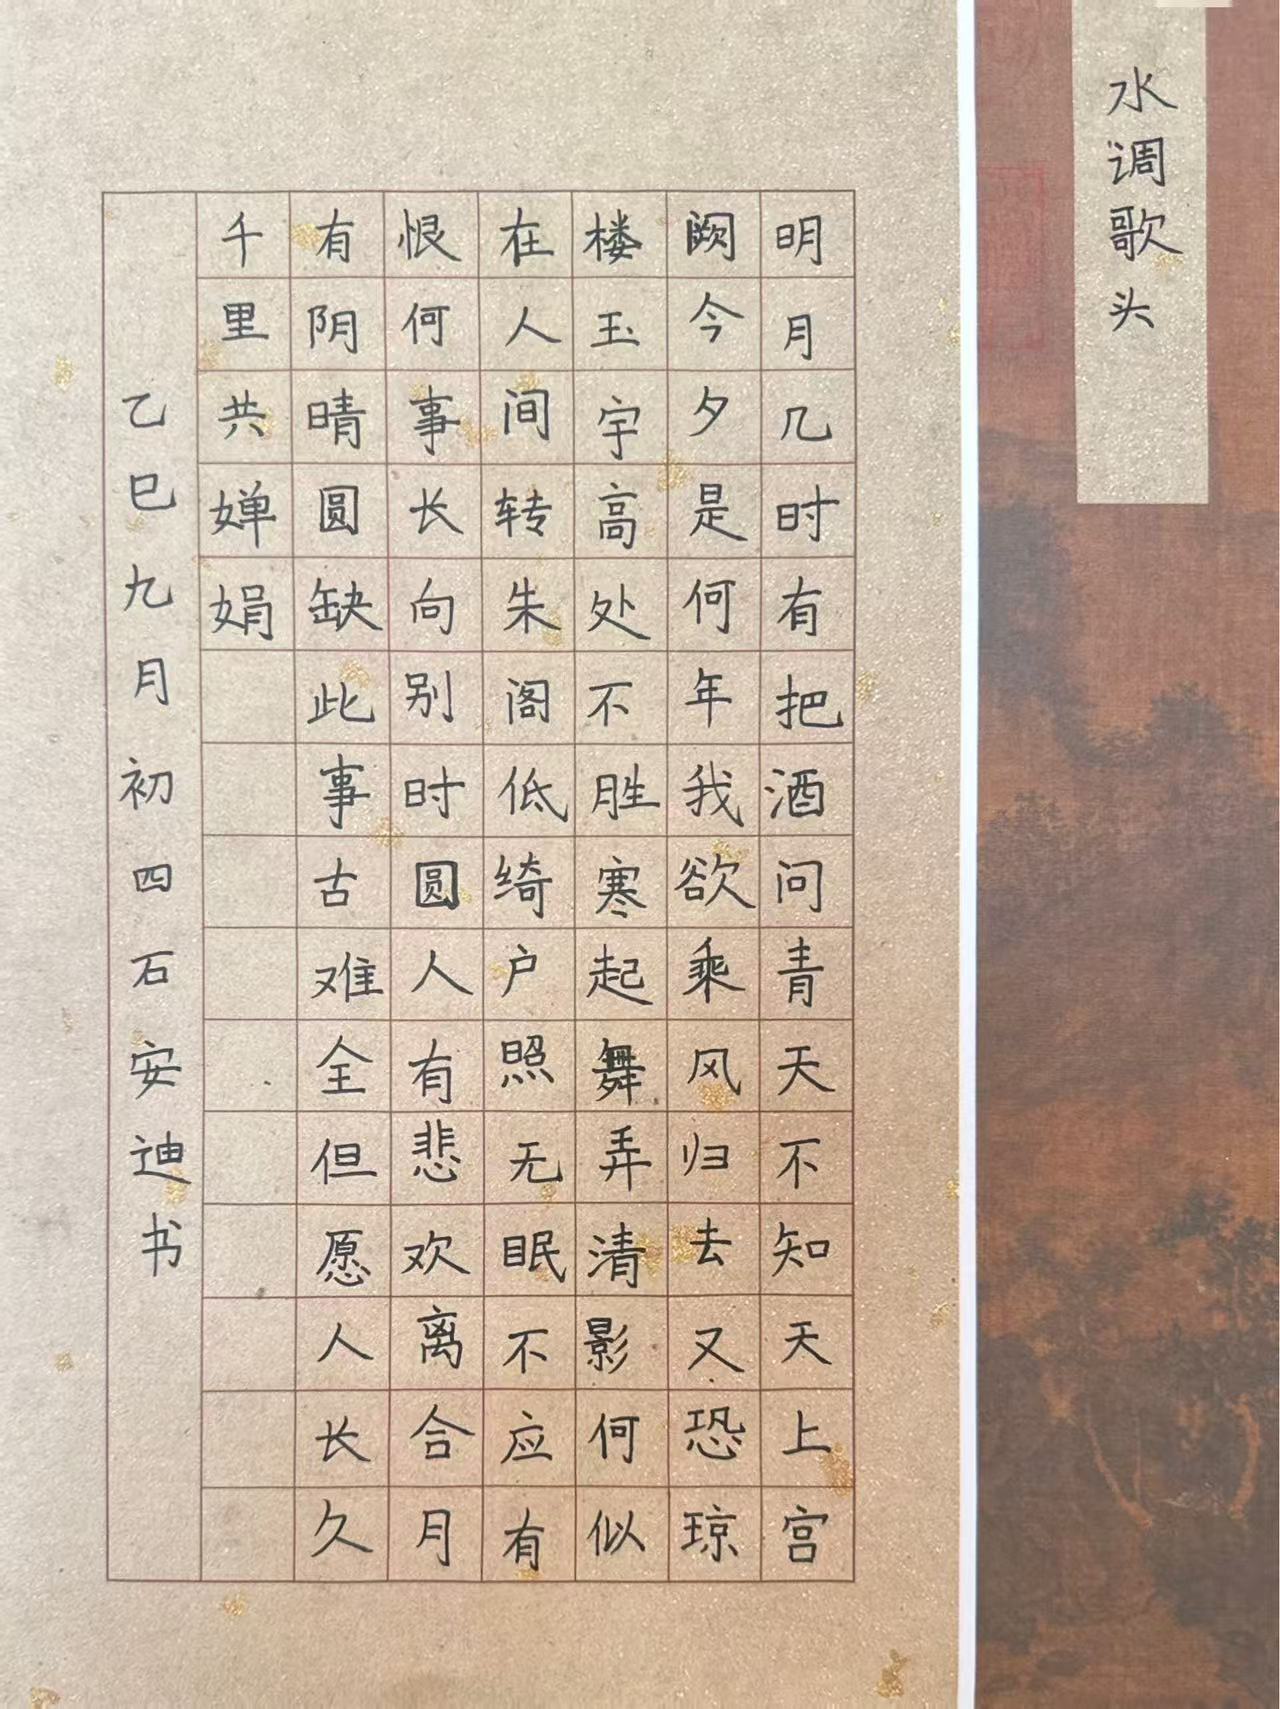 水调歌头
明月几时有把酒问青天不知天上宫
阙今夕是何年我欲乘风归去又恐琼
楼玉宇高处不胜寒起舞弄清影何似
在人间转朱阁低绮户照无眠不应有
恨何事长向别时圆人有悲欢离合月
有阴晴圆缺此事古难全但愿人长久
千里共婵娟
乙巳九月初四石安迪书